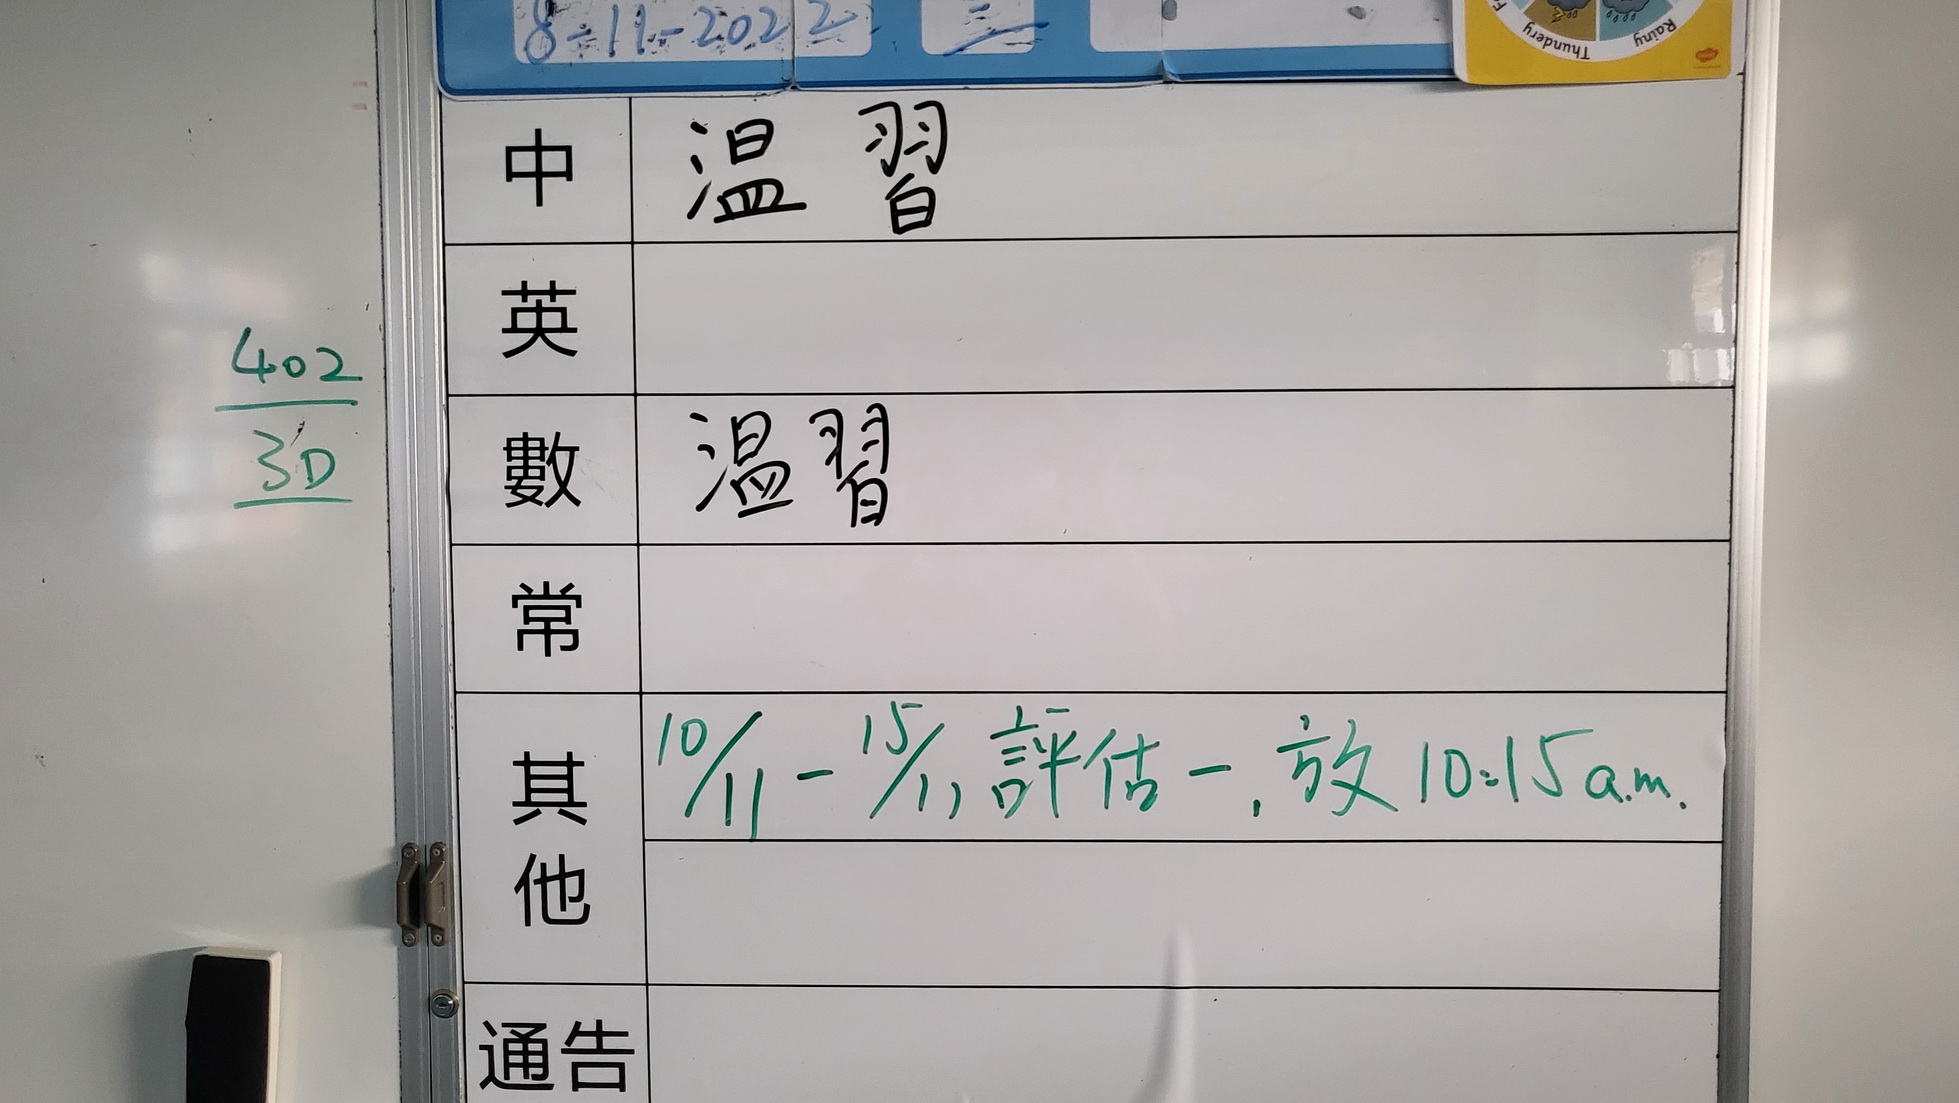 8-11-2022 二
Thundery Rainy
中 温習
英
數 温習
常
其他 10/11 - 15/11, 評估一, 放 10:15 a.m.
通告
402
3D